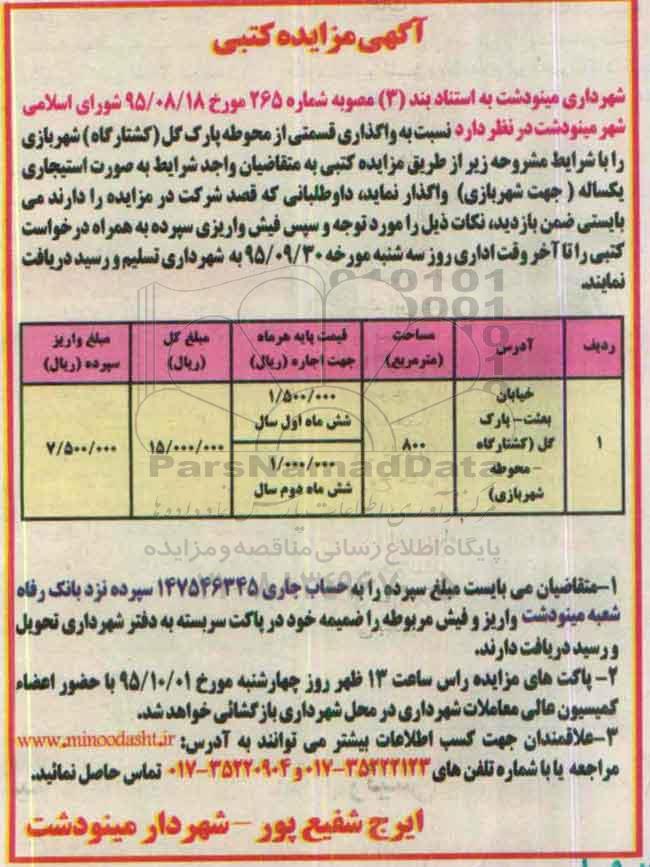 آگهی مزایده کتبی
شهرداری مینودشت به استناد بند (۳) مصوبه شماره ۲۶۵ مورخ ۹۵/۰۸/۱۸ شورای اسلامی
شهر مینودشت در نظر دارد نسبت به واگذاری قسمتی از محوطه پارک گل (کشتارگاه) شهربازی
را با شرایط مشروحه زیر از طریق مزایده کتبی به متقاضیان واجد شرایط به صورت استیجاری
یکساله (جهت شهربازی) واگذار نماید، داوطلبانی که قصد شرکت در مزایده را دارند می
بایستی ضمن بازدید، نکات ذیل را مورد توجه و سپس فیش واریزی سپرده به همراه درخواست
کتبی را تا آخر وقت اداری روز سه شنبه مورخه ۹۵/۰۹/۳۰ به شهرداری تسلیم و رسید دریافت
نمایند.
ردیف آدرس مساحت (مترمربع) قیمت پایه هر ماه جهت اجاره (ریال) مبلغ کل (ریال) مبلغ واریز سپرده (ریال)
۱ خیابان بعثت- پارک گل (کشتارگاه - محوطه شهربازی) ۸۰۰ ۱/۵۰۰/۰۰۰ شش ماه اول سال ۱/۰۰۰/۰۰۰ شش ماه دوم سال ۱۵/۰۰۰/۰۰۰ ۷/۵۰۰/۰۰۰
ParsNamadData
پایگاه اطلاع رسانی مناقصه و مزایده
۱-متقاضیان می بایست مبلغ سپرده را به حساب جاری ۱۴۷۵۴۶۳۴۵ سپرده نزد بانک رفاه
شعبه مینودشت واریز و فیش مربوطه را ضمیمه خود در پاکت سربسته به دفتر شهرداری تحویل
و رسید دریافت دارند.
۲- پاکت های مزایده راس ساعت ۱۳ ظهر روز چهارشنبه مورخ ۹۵/۱۰/۰۱ با حضور اعضاء
کمیسیون عالی معاملات شهرداری در محل شهرداری بازگشائی خواهد شد.
۳-علاقمندان جهت کسب اطلاعات بیشتر می توانند به آدرس: www.minoodasht.ir
مراجعه یا با شماره تلفن های ۳۵۲۲۲۱۲۳-۰۱۷ و ۳۵۲۲۰۹۰۴-۰۱۷ تماس حاصل نمائید.
ایرج شفیع پور - شهردار مینودشت